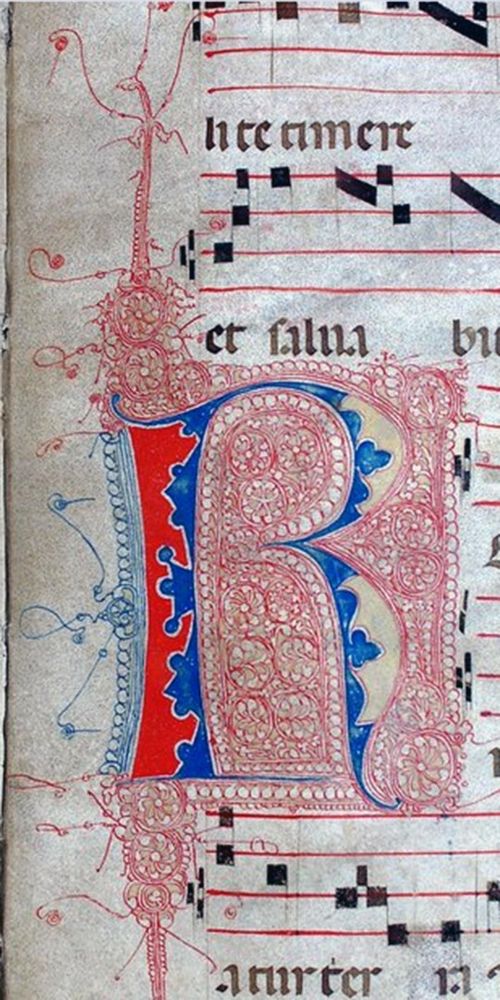 li te timere
et salua bi
R
atur ter ra